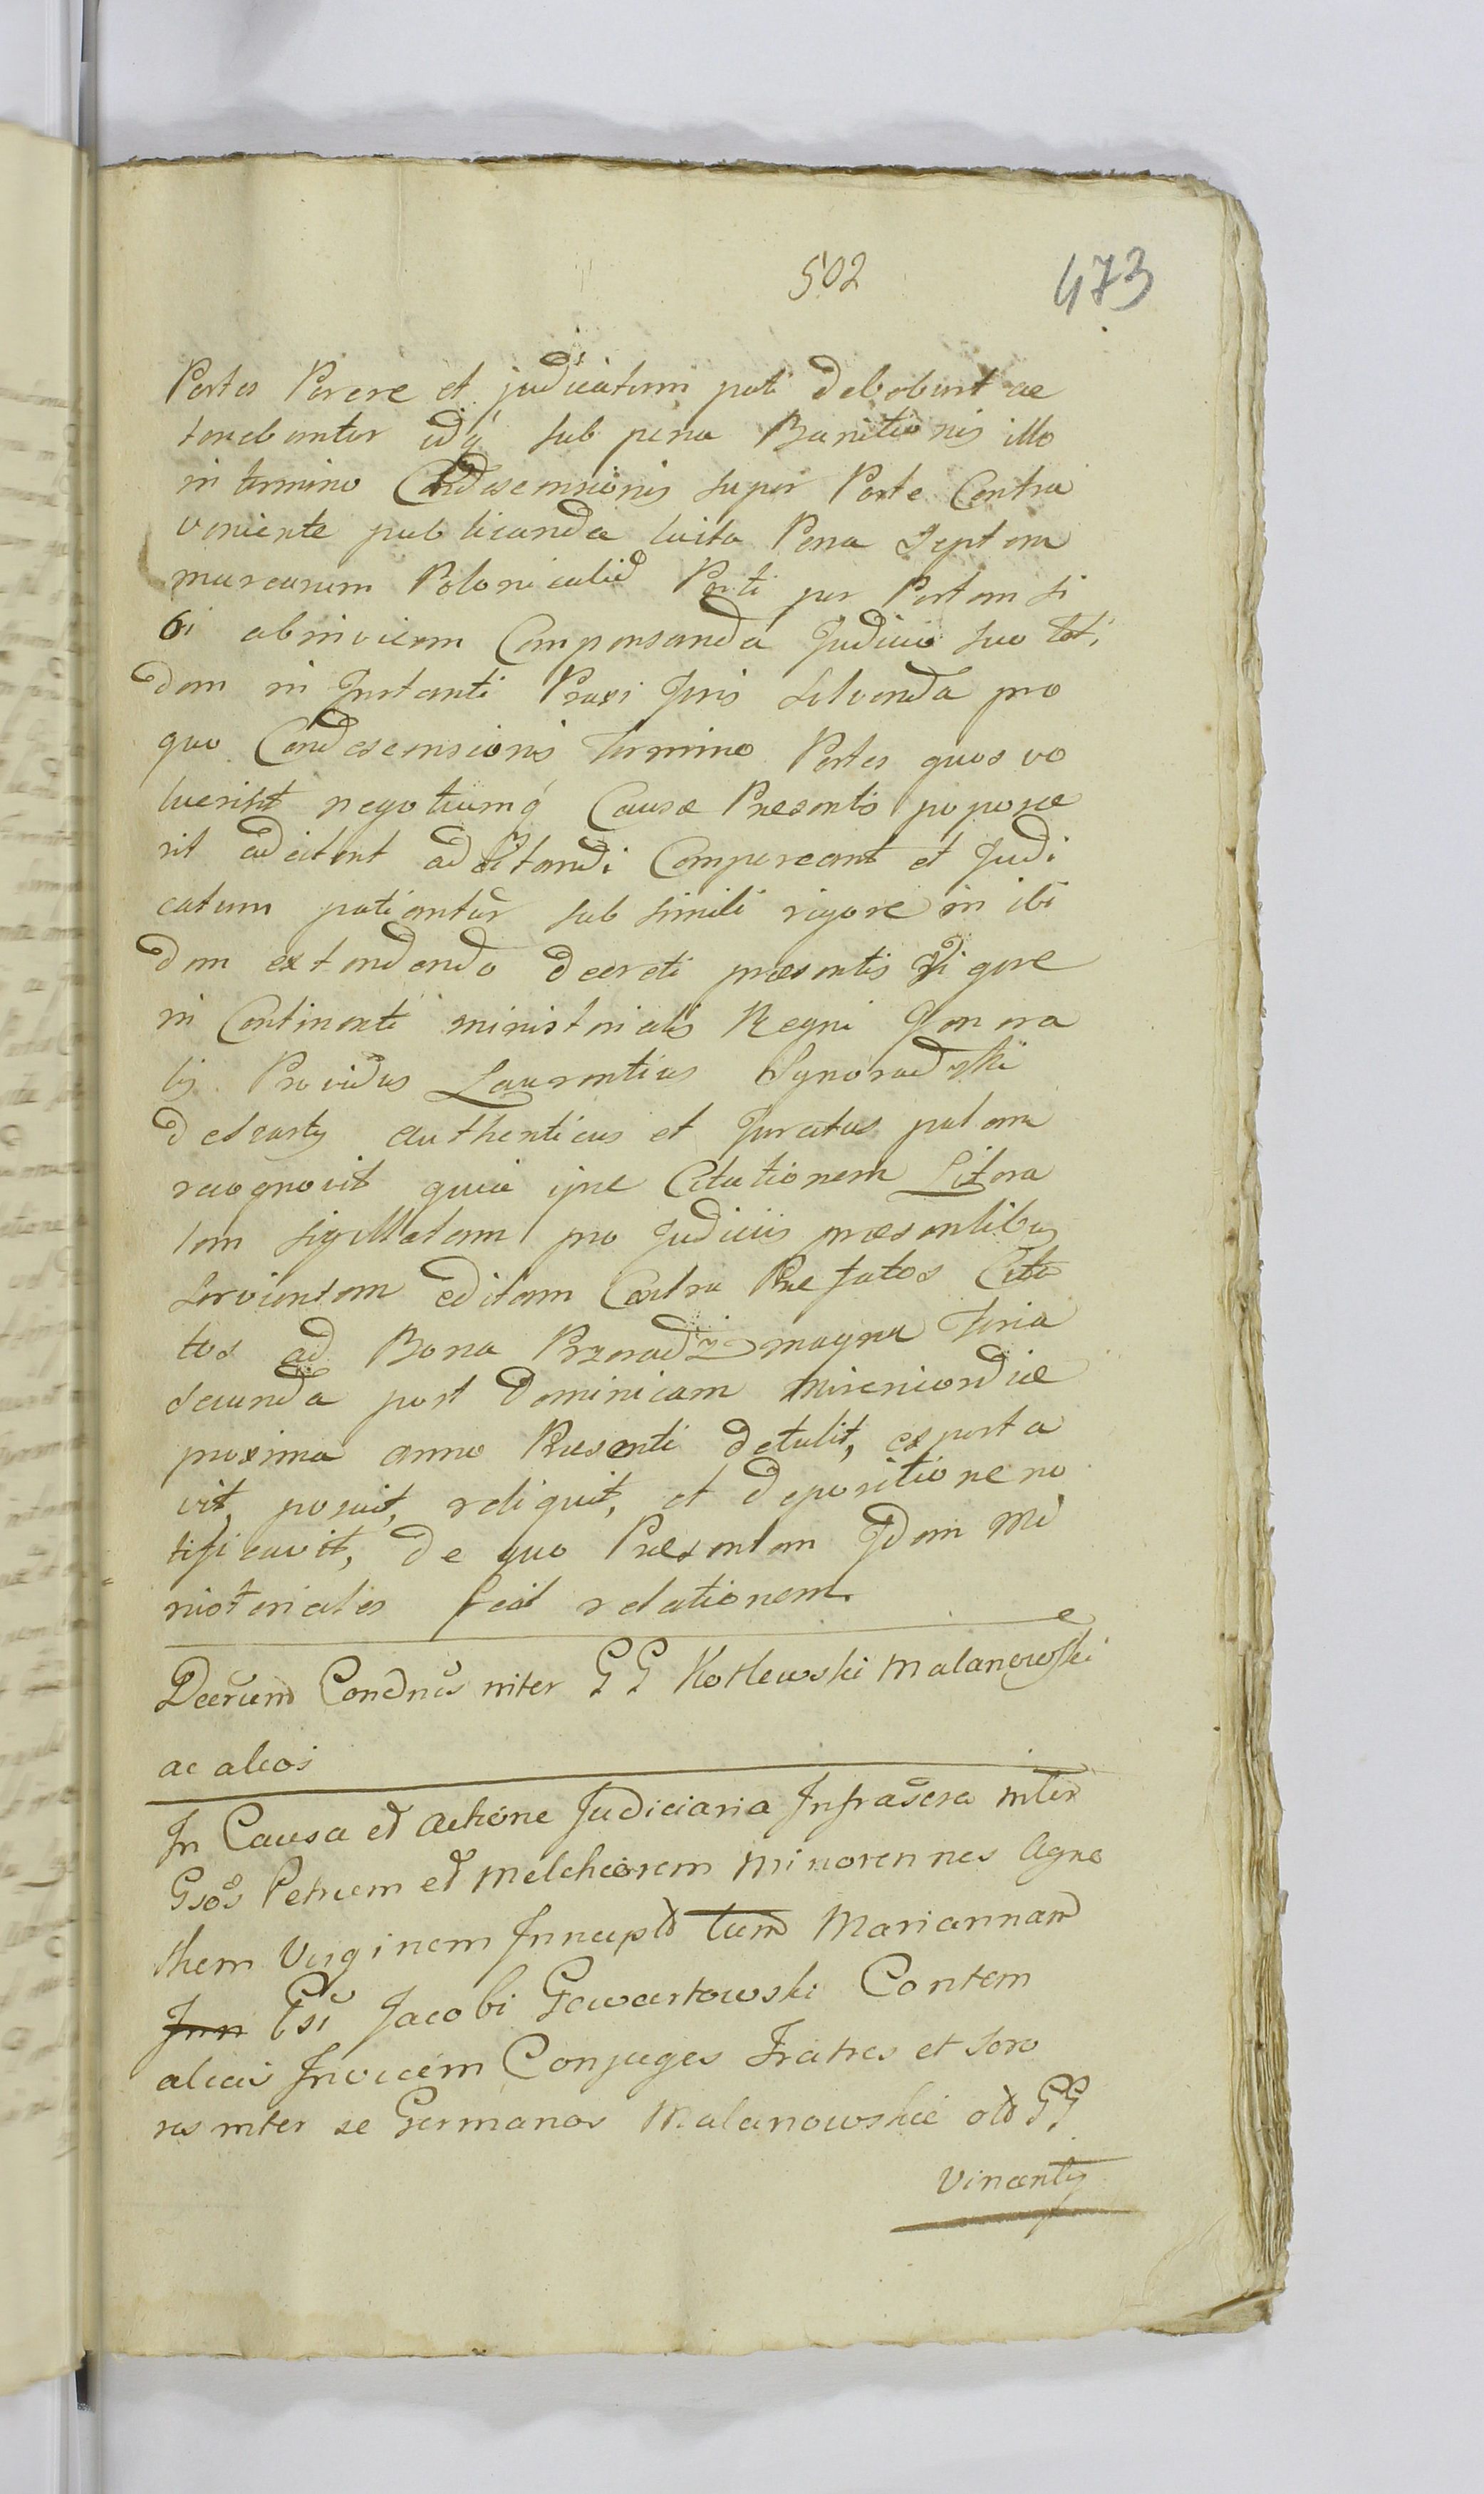 502
473
Partes Parere et judicatum pati debebunt ac
tenebuntur idq́ sub pena Banitionis illo
in termino Condescensionis super Parte Contra
veniente publicanda luita Pena Septem
marcarum Polonicaliũ Parti per Partem si
bi abinvicem Compensanda Judicio suo toti
dem in Instanti Praxi Juris Solvenda pro
quo Condescensionis Termino Partes quos vo
luerint negotiumq́ Causæ Præsentis poposce
rit adcitent adcitandi Compareant et Judi
catum patiantur sub simili rigore in ibi
dem extendendo decreti præsentis Vigore
in Continenti ministerialis Regni Genera
lis Providus Laurentius Synoradzki
de authenticus et Juratus palam
recognovit quia ipse Citationem Litera
lem sigillatam pro Judiciis præsentibus
servientem editam Contra Præfatos Cita
tos ad Bona Przeradz magna Feria
secunda post Dominicam Misericordiæ
proxima anno Præsenti detulit, exporta
vit, posuit, reliquit, et depositione no
tificavit, de quo Præsentem Idem Mi
nisterialis fecit relationem
Decrum Condnis inter GG Kotlewski Malanowski
ac alios
In Causa et actione Judiciaria Infrascra inter
Gsos Petrum et Melchiorem Minorennes Agne
them Virginem Innuptã tum Mariannam
Inn Gsi Jacobi Gawartowski Contem
alias Invicem Conjuges Fratres et Soro
res inter se Germanos Malanowskie olб GG
Vinanty